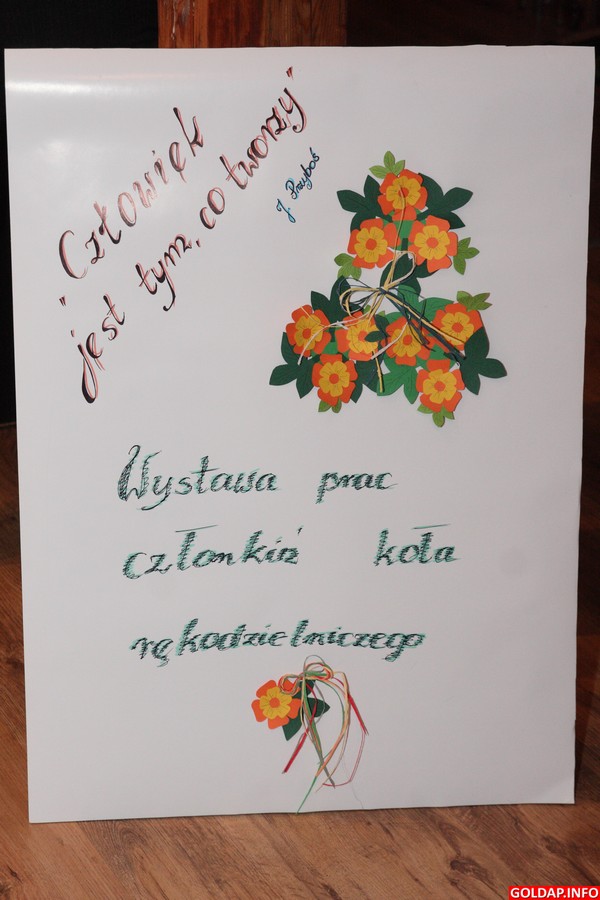 "Człowięk
jest tym, co tworzy"
J. Przyboś
Wystawa prac
członkiń koła
rękodzielniczego
GOLDAP.INFO